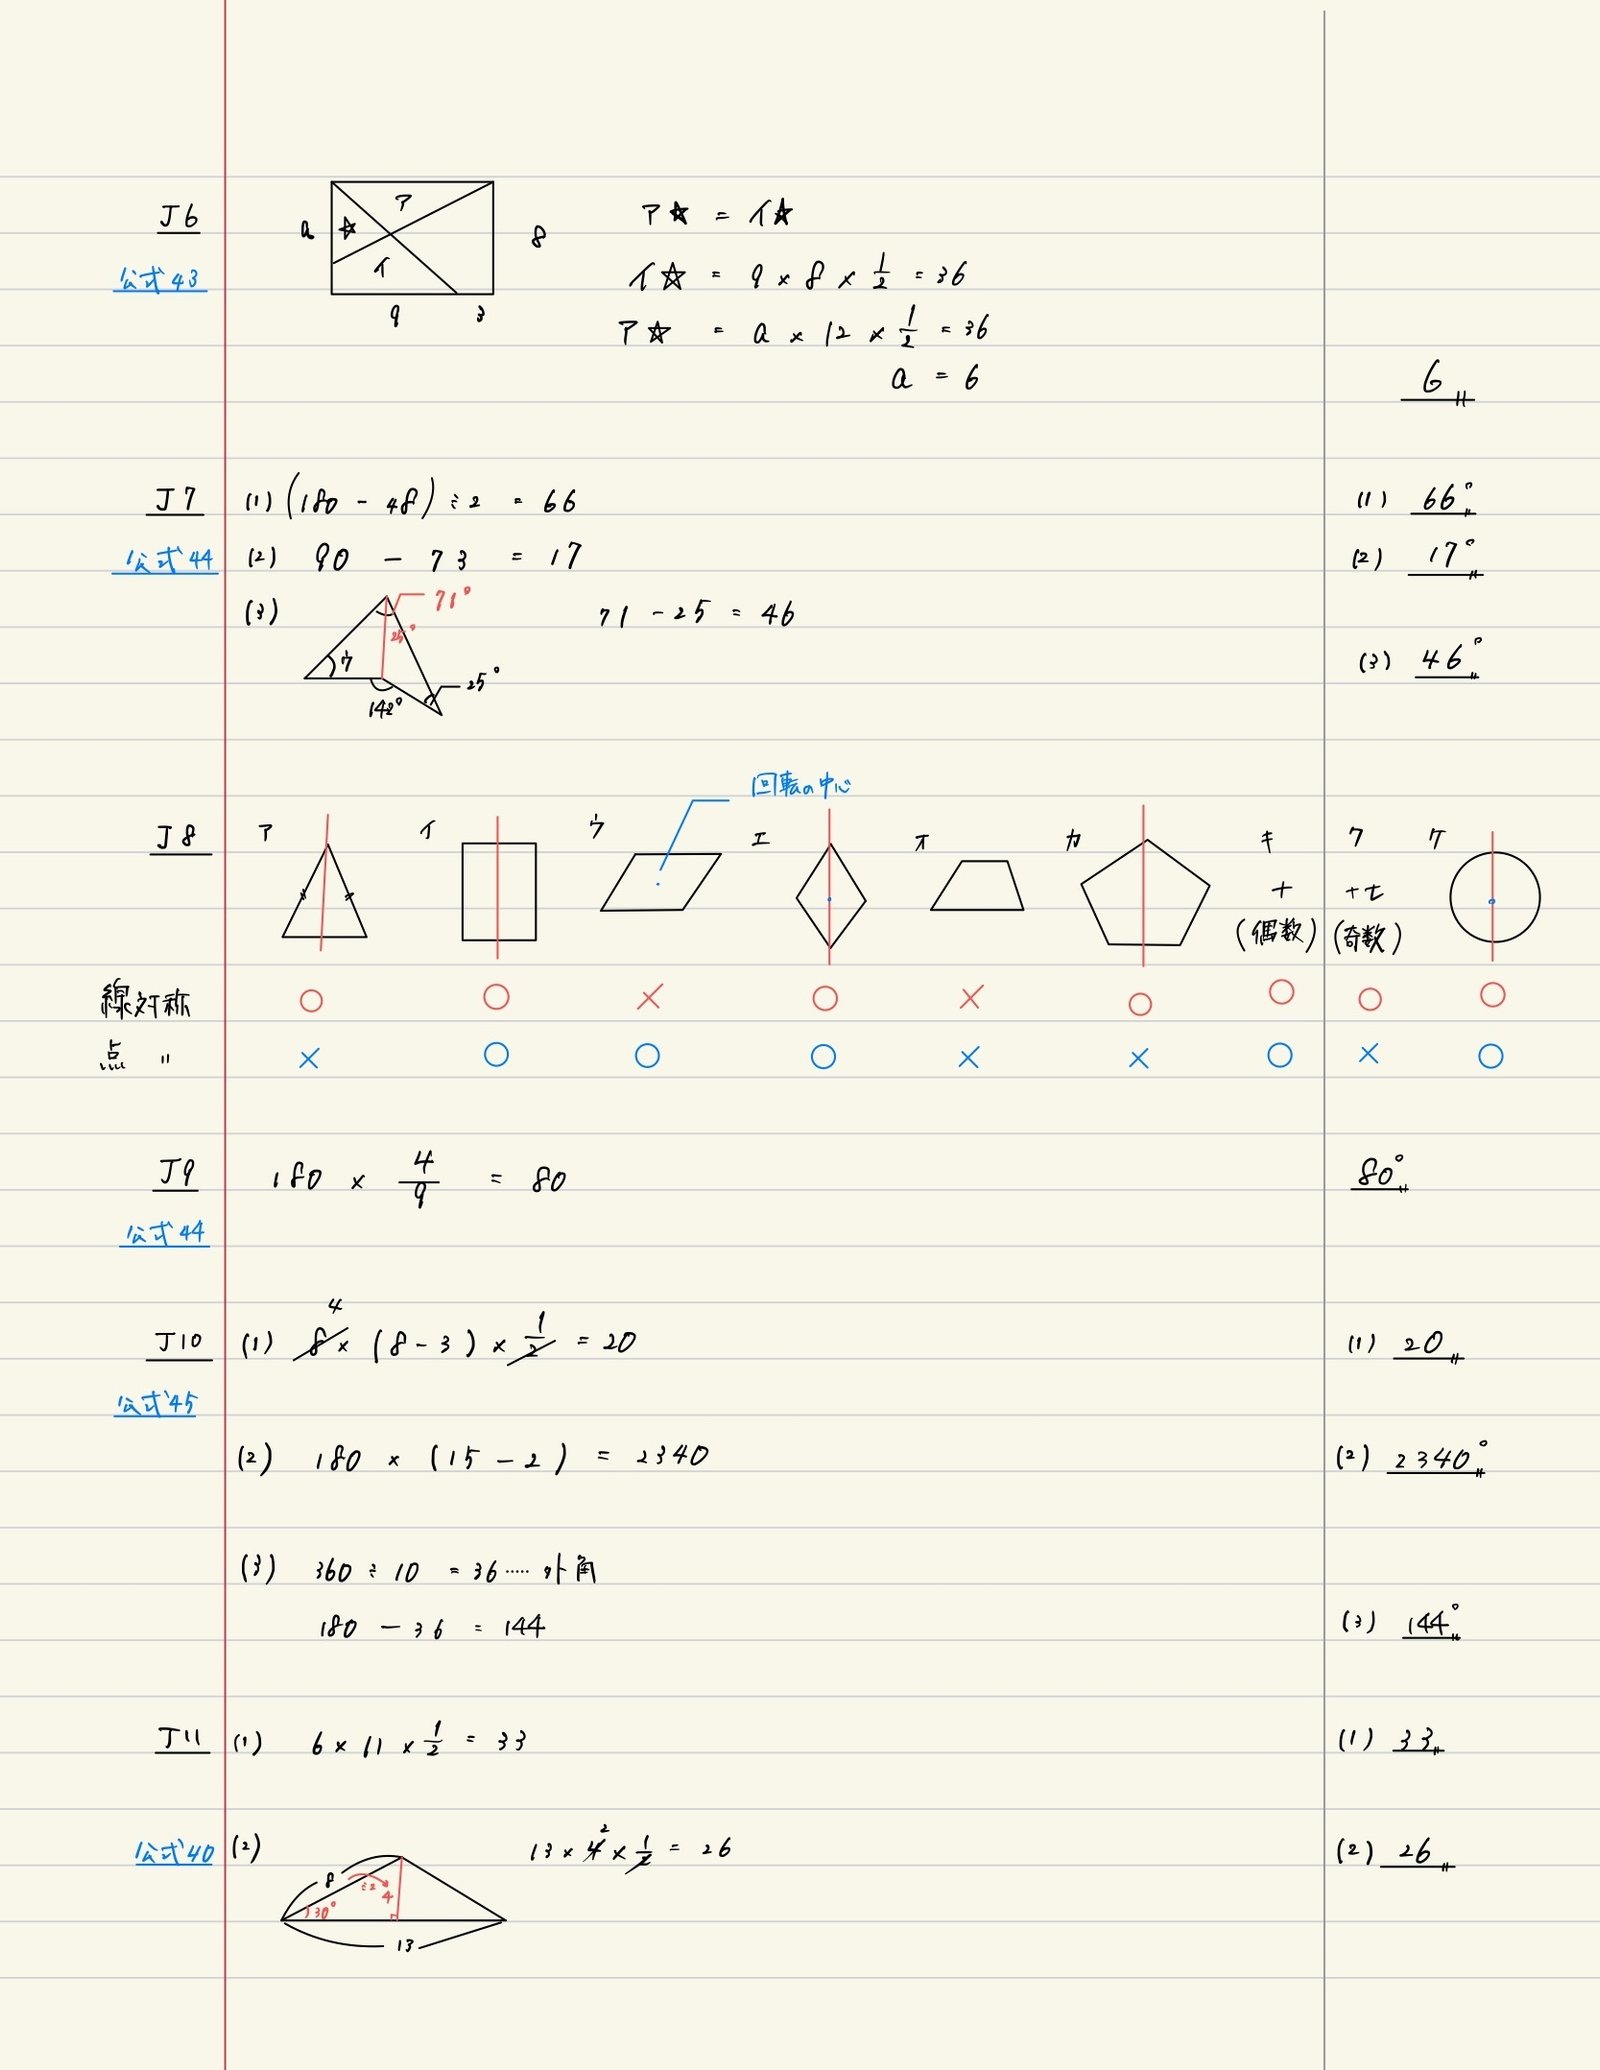 J6
公式43
a ☆ ア イ 8
9 3
ア☆ = イ☆
イ☆ = 9 × 8 × 1/2 = 36
ア☆ = a × 12 × 1/2 = 36
a = 6
6
J7 (1) (180 - 48) ÷ 2 = 66 (1) 66°
公式44 (2) 90 - 73 = 17 (2) 17°
(3) 71° 25° ウ 142° 25° 71 - 25 = 46
(3) 46°
回転の中心
J8 ア イ ウ エ オ カ キ ク ケ
十 十七
(偶数) (奇数)
線対称 ○ ○ × ○ × ○ ○ ○ ○
点 〃 × ○ ○ ○ × × ○ × ○
J9 180 × 4/9 = 80 80°
公式44
4
J10 (1) 8 × (8 - 3) × 1/2 = 20 (1) 20
公式45
(2) 180 × (15 - 2) = 2340 (2) 2340°
(3) 360 ÷ 10 = 36 ‥‥‥ 外角
180 - 36 = 144 (3) 144°
J11 (1) 6 × 11 × 1/2 = 33 (1) 33
公式40 (2) 13 × 4 2 × 1/2 = 26 (2) 26
8 ÷2 4
30°
13